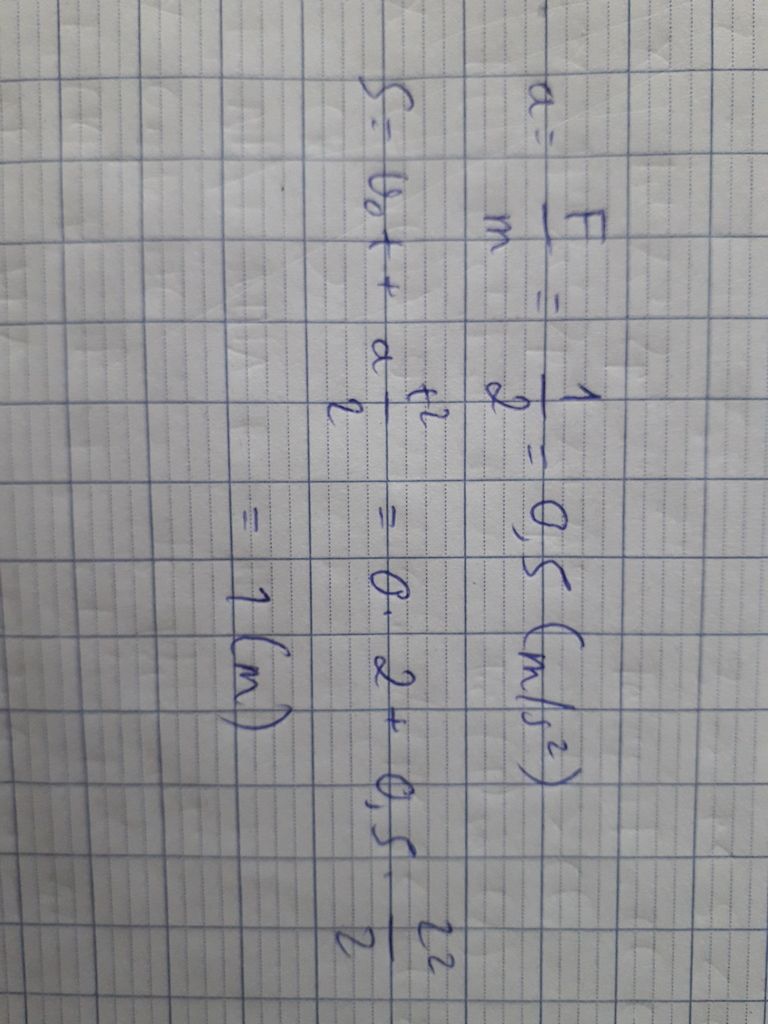 a = F/m = 1/2 = 0,5 (m/s²)
S = v₀t + a t²/2 = 0. 2 + 0,5 . 2²/2
= 1 (m)